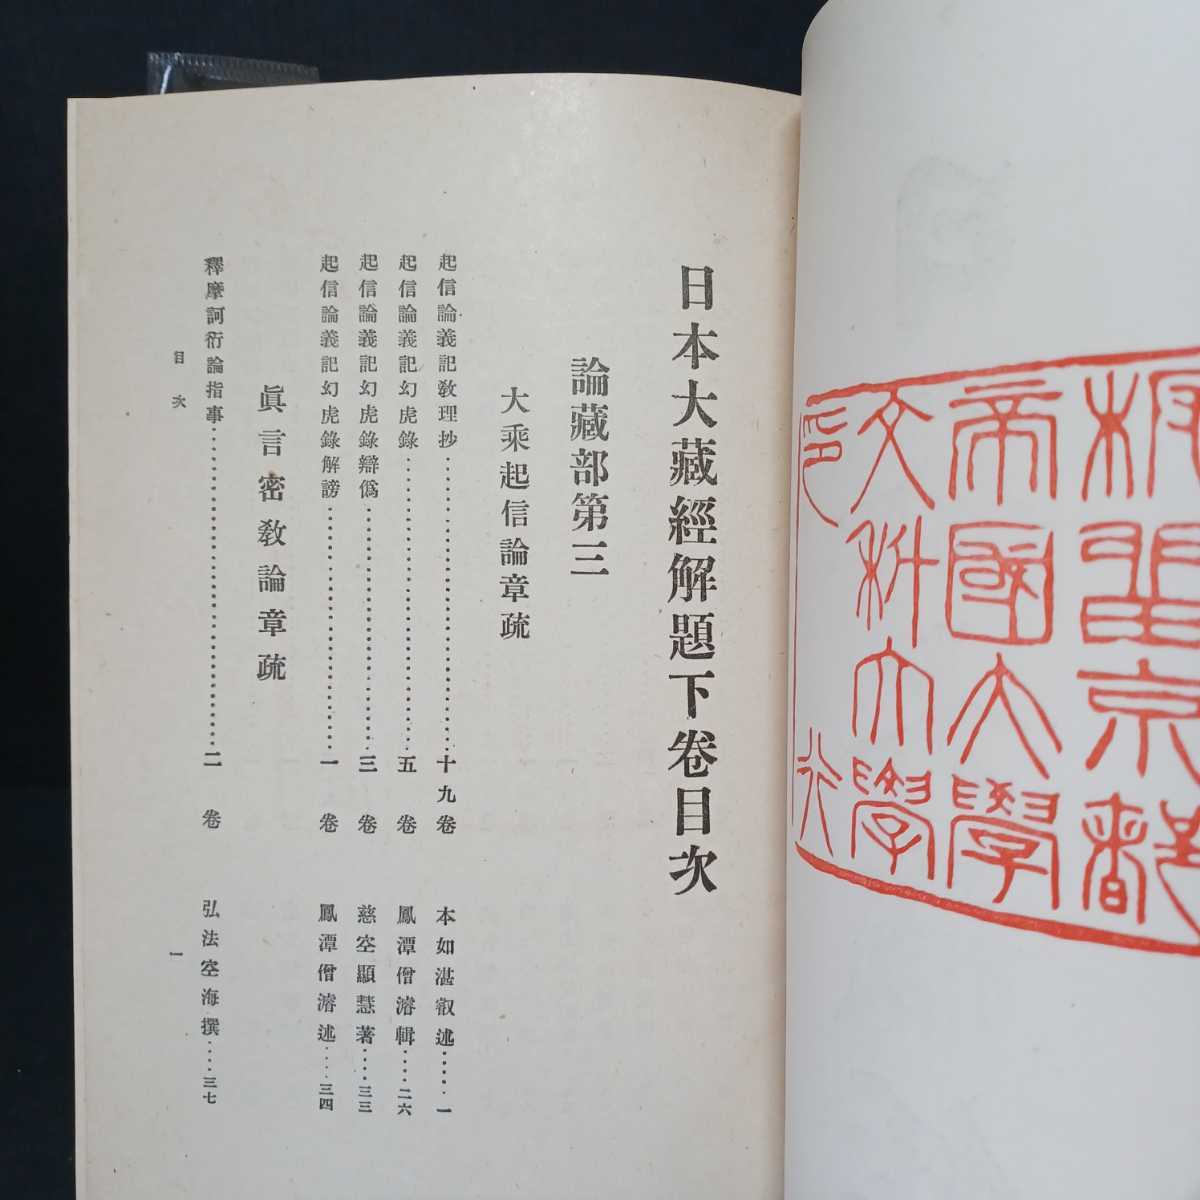 京都
帝國大學
文科大學
印行
日本大藏經解題下卷目次
論藏部第三
大乘起信論章疏
起信論義記敎理抄……………………十九卷 本如湛叡述……一
起信論義記幻虎錄……………………五卷 鳳潭僧濬輯……二六
起信論義記幻虎錄辯僞……………………三卷 慈空顯慧著……三三
起信論義記幻虎錄解謗……………………一卷 鳳潭僧濬述……三四
眞言密敎論章疏
釋摩訶衍論指事……………………二卷 弘法空海撰……三七
目次 一